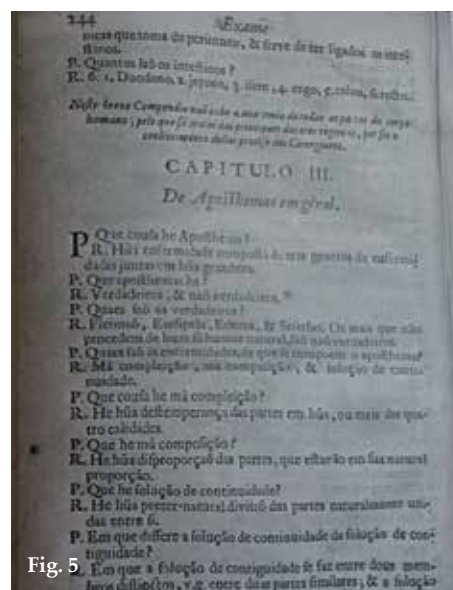 244 Exame
nicas que toma do peritoneo, & serve de ter ligados os intes-
tinos.
P. Quantos saõ os intestinos?
R. 6. 1, Duodeno, 2. jejuno, 3. ileon, 4. cego, 5. colon, 6. recto.
Neste breve Compendio naõ cabe a anatomia de todas as partes do corpo
humano; pelo que se trataõ das principaes das tres regioens, por ser o
conhecimento dellas preciso aos Cirurgioens.
CAPITULO III.
De Aposthemas em géral.
P. Que cousa he Aposthema?
R. Hũa enfermidade composta de tres generos de enfermi-
dades juntas em hũa grandeza.
P. Que aposthemas ha?
R. Verdadeiros, & naõ verdadeiros.
P. Quaes saõ os verdadeiros?
R. Fleimaõ, Erisipela, Edema, & Scirrho. Os mais que naõ
procedem de humor natural, saõ naõ verdadeiros.
P. Quaes saõ as enfermidades, de que se compoem o aposthema?
R. Má compleiçaõ, má composiçaõ, & soluçaõ de conti-
nuidade.
P. Que cousa he má compleiçaõ?
R. He hũa destemperança das partes em hũa, ou mais das qua-
tro calidades.
P. Que he má composiçaõ?
R. He hũa disproporçaõ das partes, que estaraõ em sua natural
proporçaõ.
P. Que he soluçaõ de continuidade?
R. He hũa preter-natural divisaõ das partes naturalmente uni-
das entre si.
P. Em que differe a soluçaõ de continuidade da soluçaõ de con-
tiguidade?
R. Em que a soluçaõ de contiguidade se faz entre dous mem-
bros distinctos, v.g. entre duas partes similares; & a soluçaõ
Fig. 5